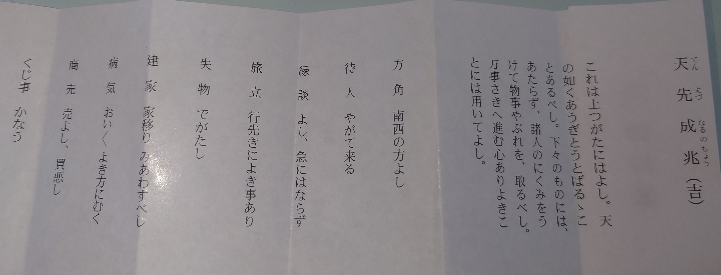 天先成兆(吉)
てん せつ なるのちょう
これは上つがたにはよし。天
の如くあうぎとうとばるゝこ
とあるべし。下々のものには、
あたらず、諸人のにくみをう
けて物事やぶれを、取るべし。
万事さきへ進む心ありよきこ
とには用いてよし。
方角 南西の方よし
待人 やがて来る
縁談 よし、急にはならず
旅立 行先きによき事あり
失物 でがたし
建家 家移り みあわすべし
病気 おい〱よき方にむく
商売 売よし、買悪し
くじ事 かなう